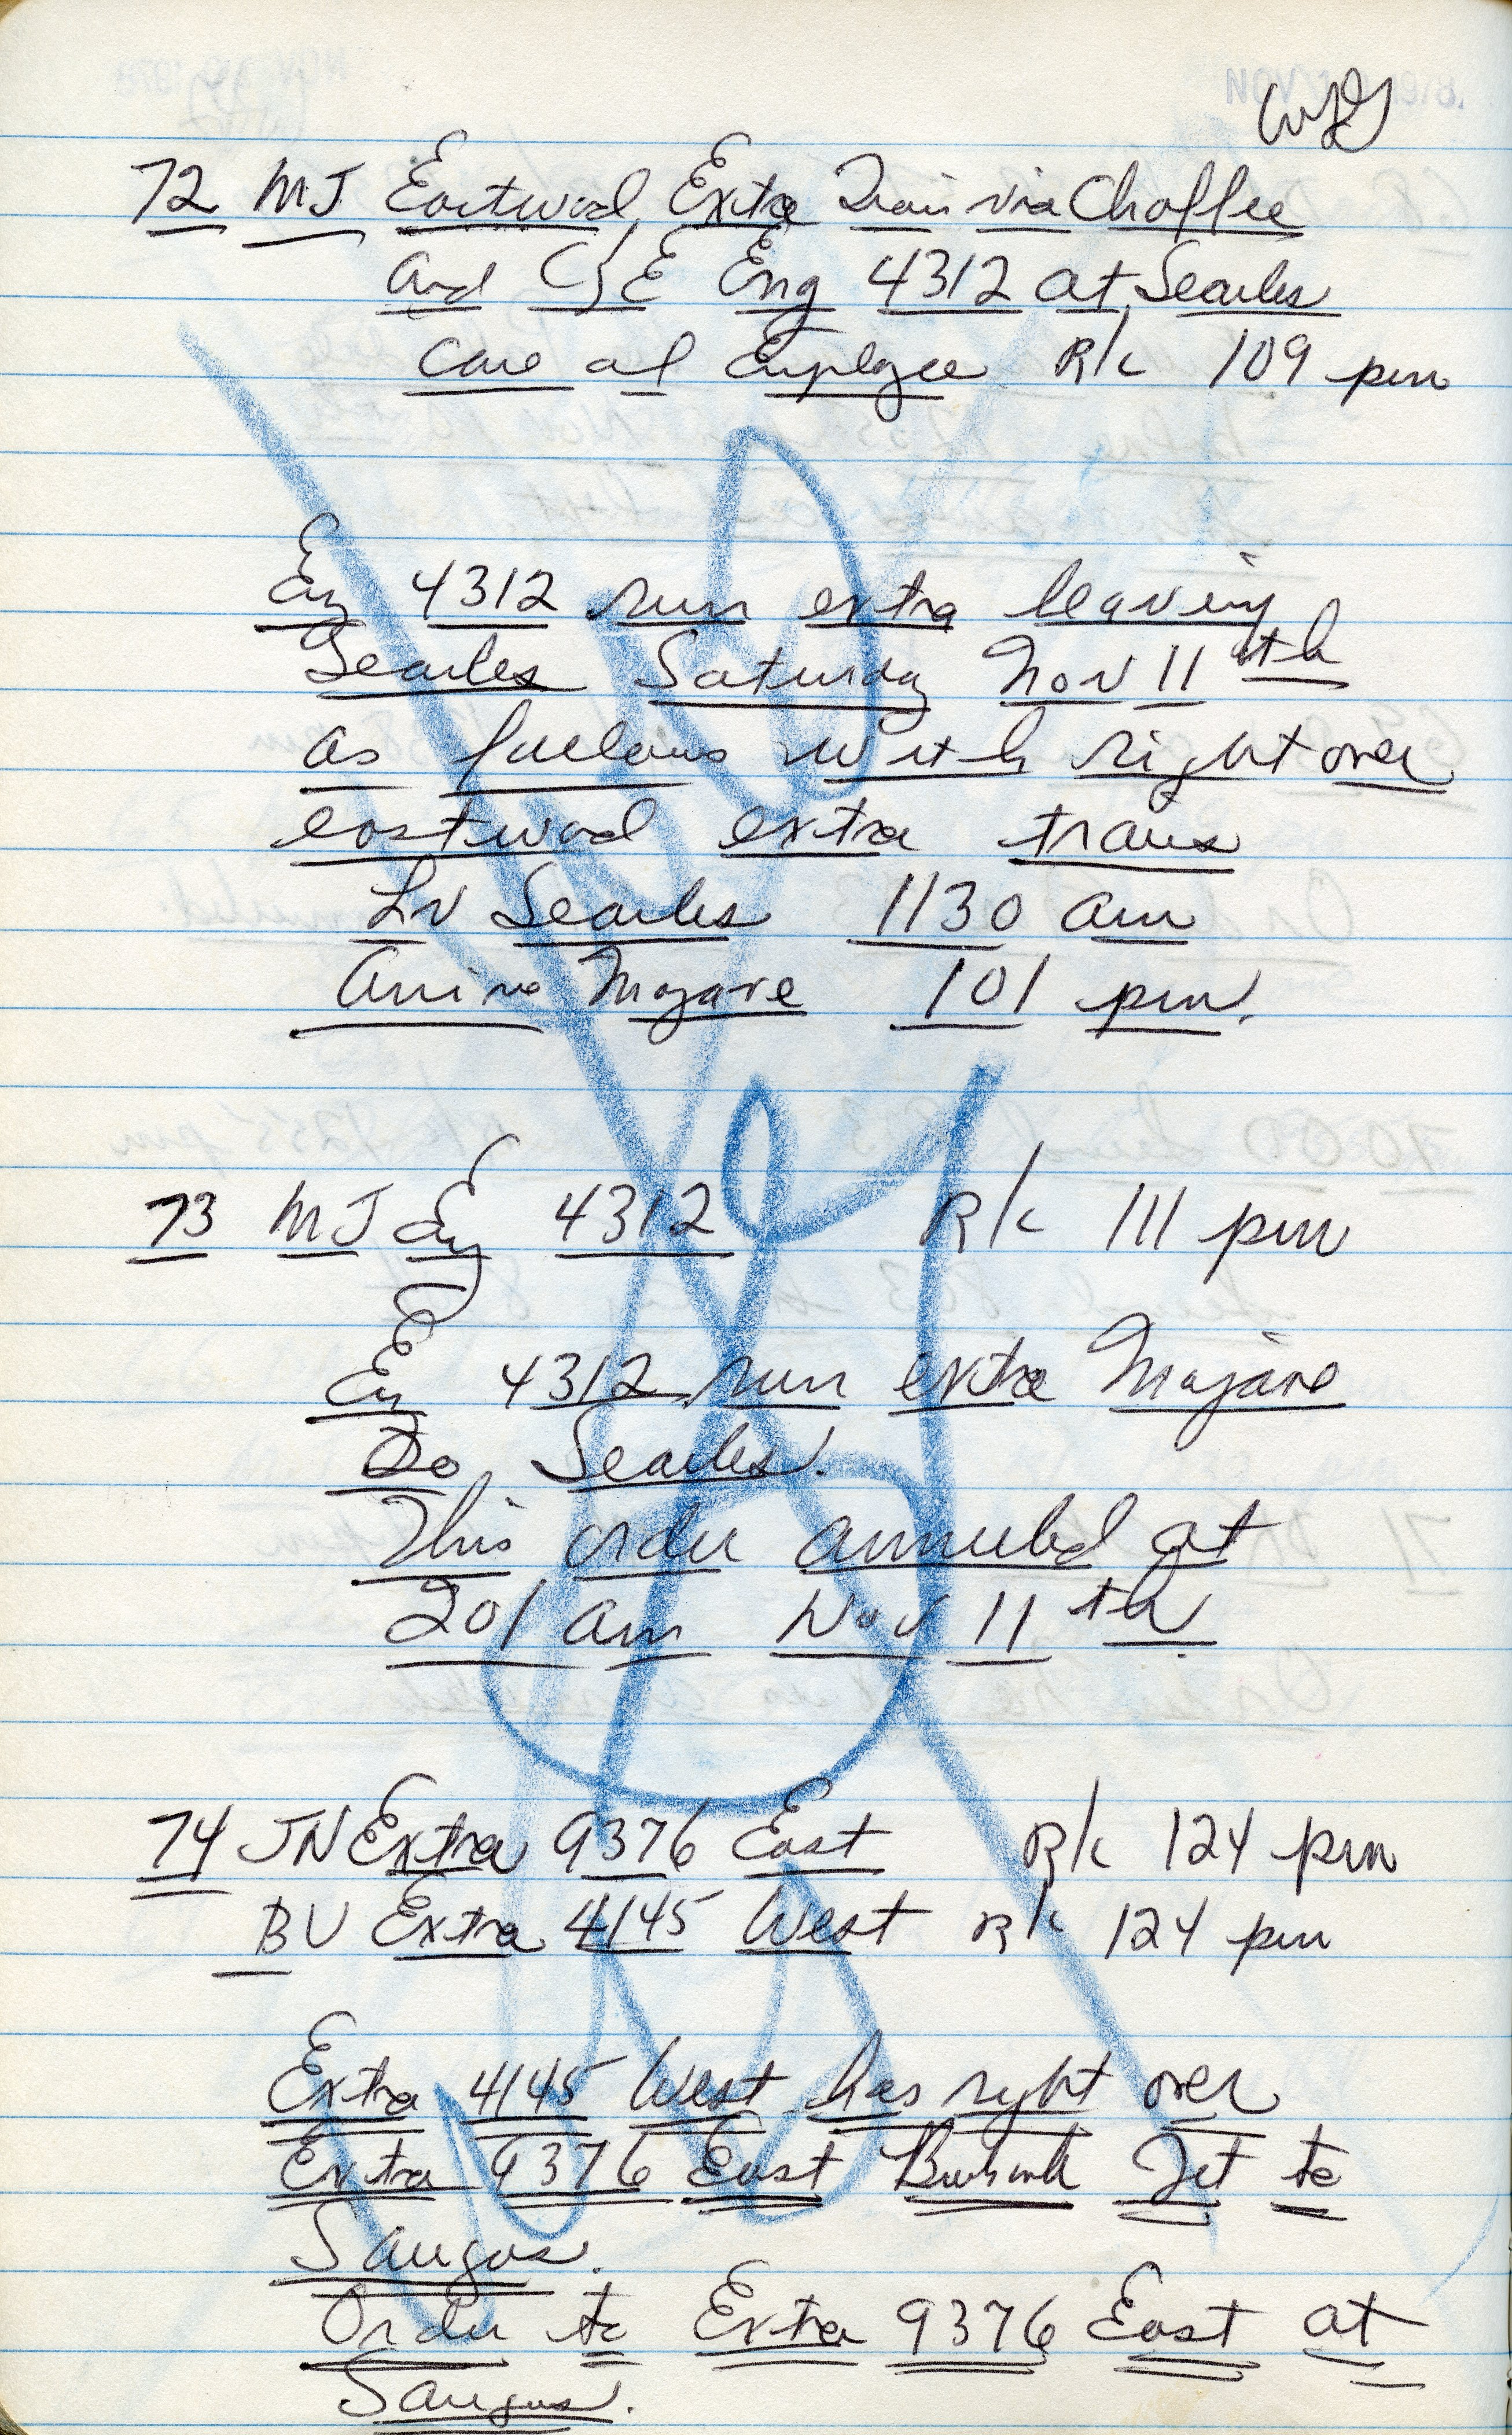 WJG
72 MJ Eastward Extra Train via Chaffee
and C&E Eng 4312 at Searles
care of Employee R/c 109 pm
Eng 4312 run extra leaving
Searles Saturday Nov 11th
as follows with right over
eastward extra trains
Lv Searles 1130 am
Arrive Mojave 101 pm.
73 MJ Eng 4312 R/c 111 pm
Eng 4312 run extra Mojave
To Searles.
This order annuled at
201 am Nov 11th.
74 JN Extra 9376 East R/c 124 pm
BU Extra 4145 West R/c 124 pm
Extra 4145 West has right over
Extra 9376 East Burbank Jct to
Saugus.
Order to Extra 9376 East at
Saugus.